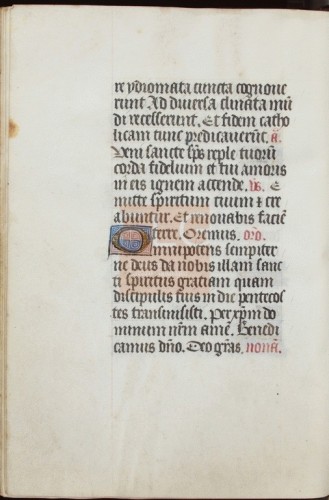 re ydiomata cuncta cognoue
runt Ad diuersa climata mū
di recesserunt. Et fidem catho
licam tunc predicauerūt. a.
Veni sancte sp̄s reple tuorū
corda fidelium et tui amoris
in eis ignem accende. v̄s. E
mitte spiritum tuum & cre
abuntur. Et renouabis faciē
terre. Oremus. oro.
Omnipotens sempiter
ne deus da nobis illam sanc
ti spiritus gratiam quam
discipulis tuis in die pentecos
tes transmisisti. Per xp̄m do
minum nr̄m amē. Benedi
camus dn̄o. Deo gr̄as. nonā.